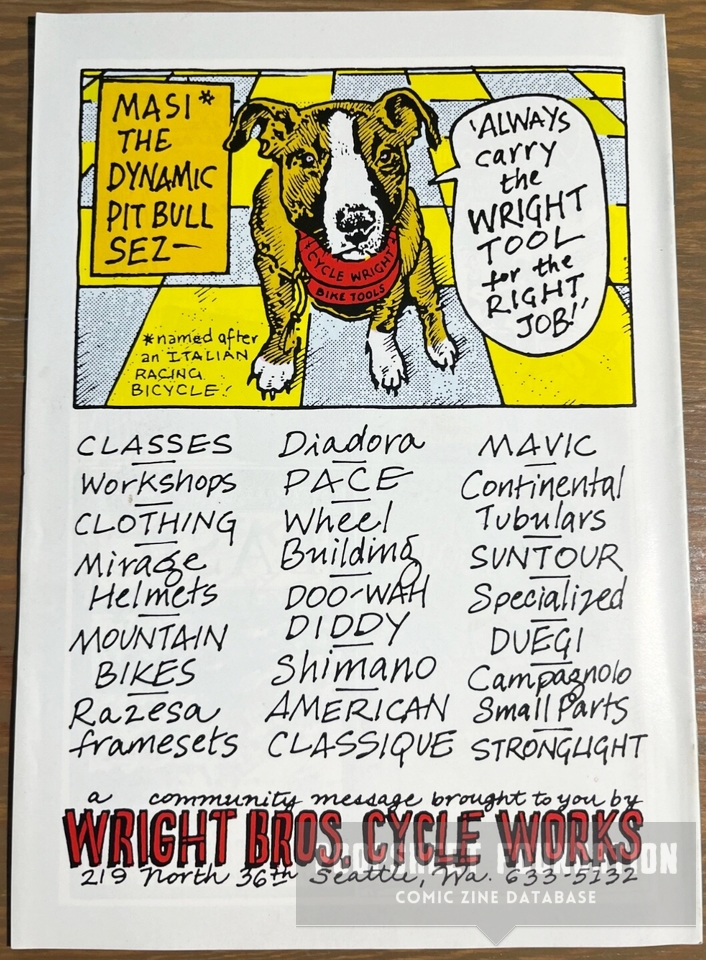 MASI*
THE
DYNAMIC
PIT BULL
SEZ—
'ALWAYS
carry
the
WRIGHT
TOOL
for the
RIGHT
JOB!'
CYCLE WRIGHT
BIKE TOOLS
*named after
an ITALIAN
RACING
BICYCLE!
CLASSES
Workshops
CLOTHING
Mirage
Helmets
MOUNTAIN
BIKES
Razesa
framesets
Diadora
PACE
Wheel
Building
DOO-WAH
DIDDY
Shimano
AMERICAN
CLASSIQUE
MAVIC
Continental
Tubulars
SUNTOUR
Specialized
DUEGI
Campagnolo
Small Parts
STRONGLIGHT
a community message brought to you by
WRIGHT BROS. CYCLE WORKS
219 North 36th Seattle, Wa. 633-5132
FOUNDATION
COMIC ZINE DATABASE